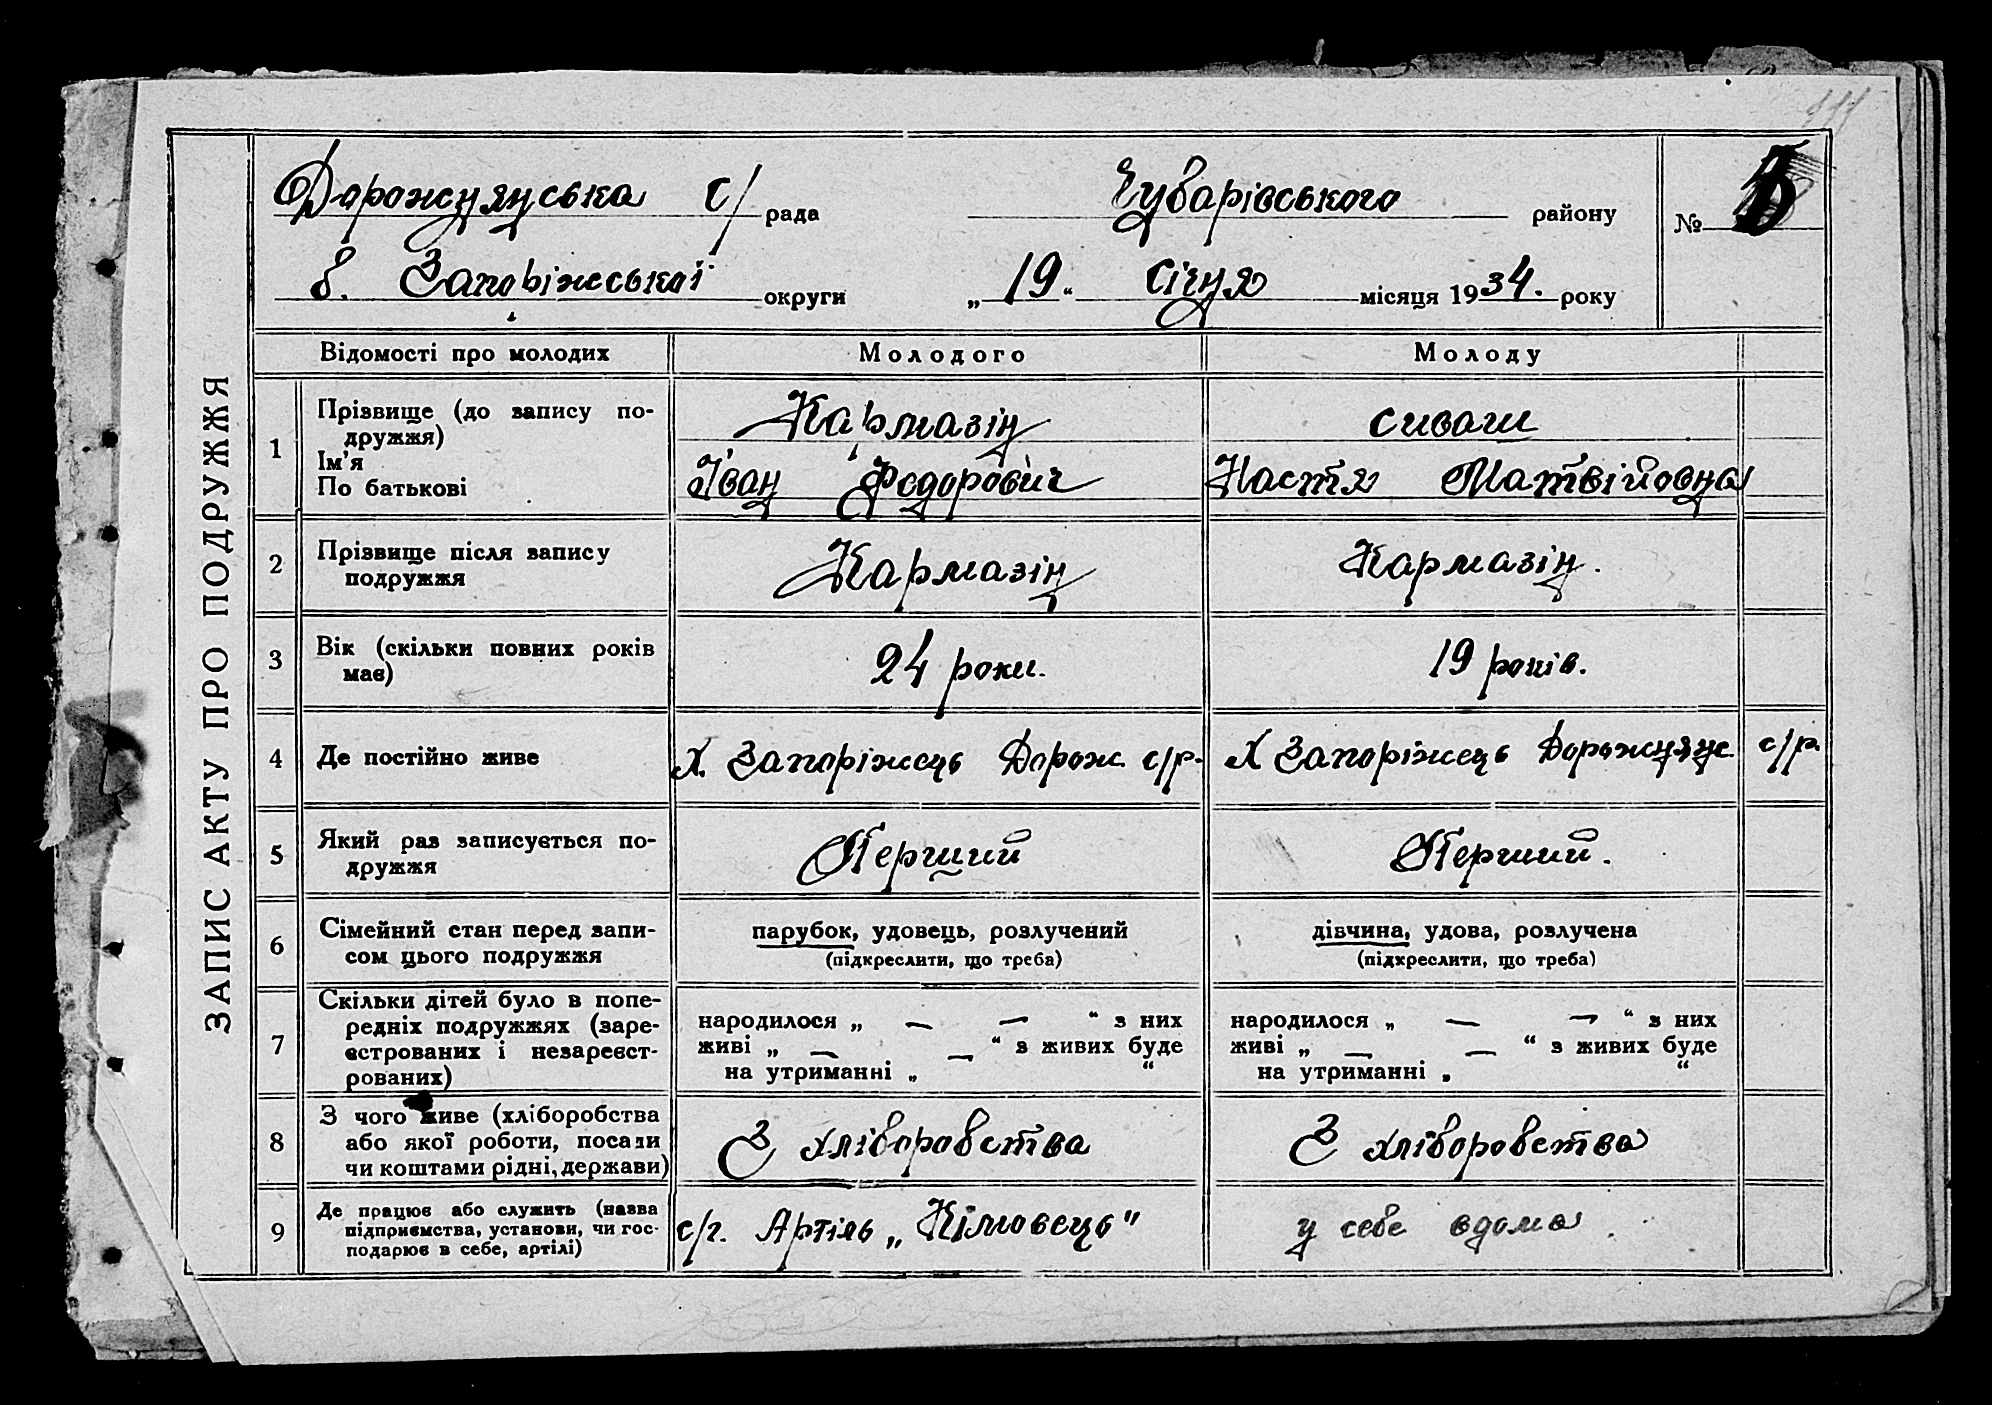 ЗАПИС АКТУ ПРО ПОДРУЖЖЯ
Дорожнянська с/рада Чубарівського району №
б. Запоріжської округи „19“ січня місяця 1934. року
Відомості про молодих Молодого Молоду
1 Прізвище (до запису по-
дружжя)
Ім'я
По батькові
Кармазін
Іван Федорович
сиваш
Настя Матвійовна
2 Прізвище після запису
подружжя
Кармазін
Кармазін.
3 Вік (скільки повних років
має)
24 роки.
19 років.
4 Де постійно живе
х. Запоріжець Дорож. с/р.
х Запоріжець Дорожнянс. с/р.
5 Який раз записується по-
дружжя
Перший
Перший.
6 Сімейний стан перед запи-
сом цього подружжя
парубок, удовець, розлучений
(підкреслити, що треба)
дівчина, удова, розлучена
(підкреслити, що треба)
7 Скільки дітей було в попе-
редніх подружжях (заре-
єстрованих і незареєст-
рованих)
народилося „ — — “ з них
живі „ — — “ з живих буде
на утриманні „ “
народилося „ — — “ з них
живі „ — — “ з живих буде
на утриманні „ “
8 З чого живе (хліборобства
або якої роботи, посади
чи коштами рідні, держави)
З хліборобства
З хліборобства
9 Де працює або служить (назва
підприємства, установи, чи гос-
подарює в себе, артілі)
с/г. Артіль „Кімовець“
у себе вдома